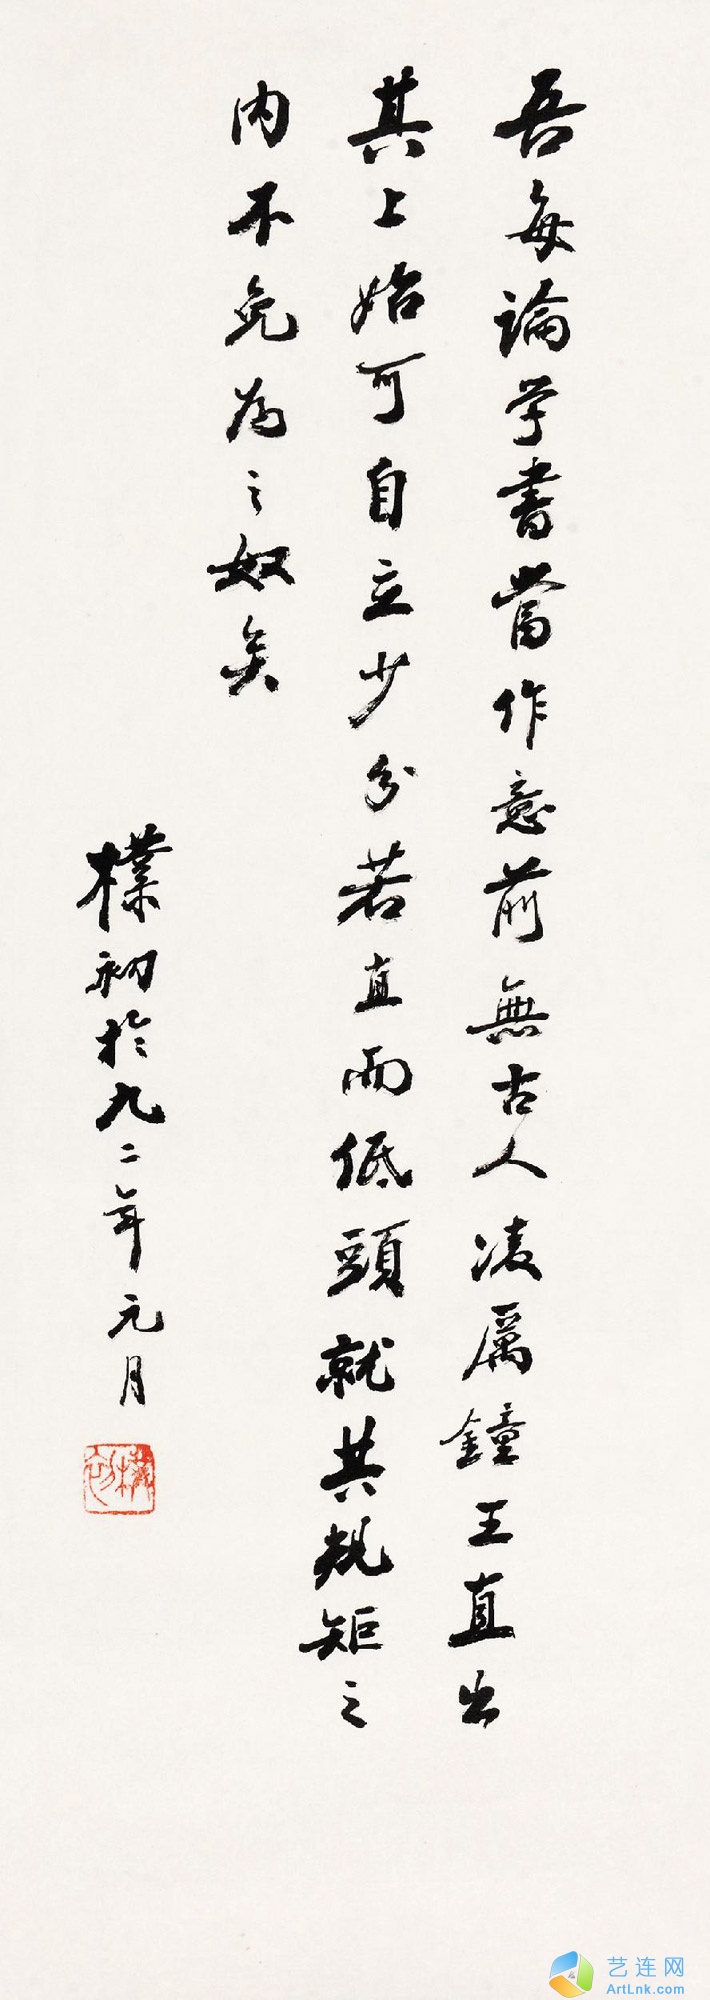 吾每論学書當作意前無古人凌厲鐘王直出
其上始可自立少分若直而低頭就其規矩之
内不免为之奴矣
樸初於九二年元月
樸初
艺连网
ArtLnk.com